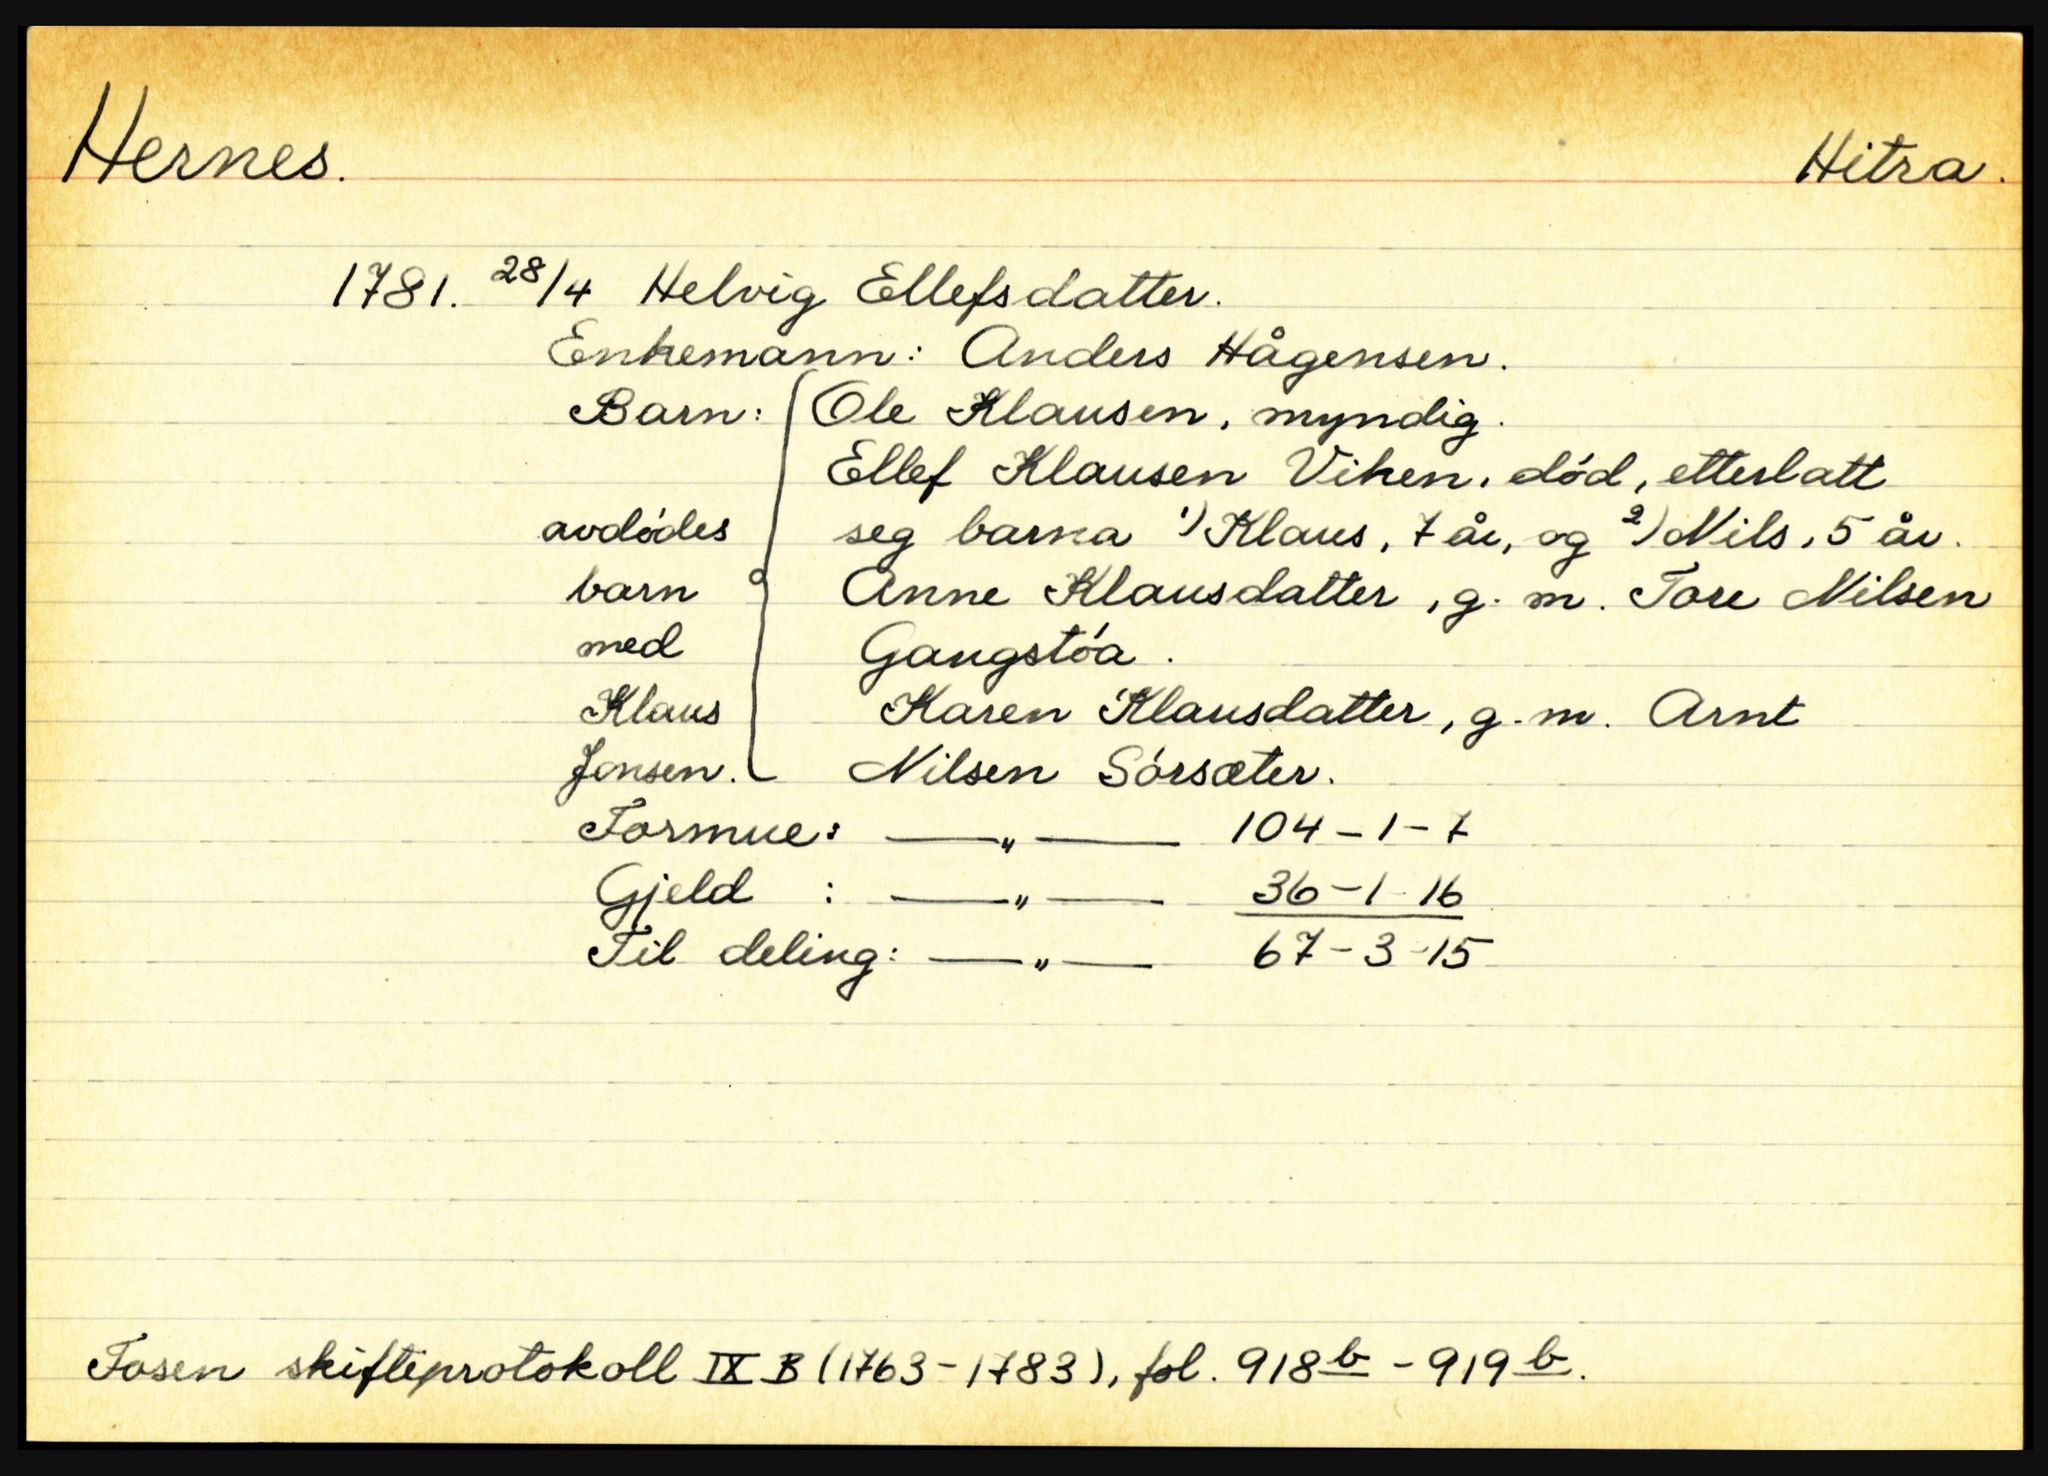 Hernes. Hitra.
1781. 28/4 Helvig Ellefsdatter.
Enkemann: Anders Hågensen.
Barn: Ole Klausen, myndig.
Ellef Klausen Viken, død, etterlatt
avdødes seg barna 1) Klaus, 7 år, og 2) Nils, 5 år.
barn Anne Klausdatter, g. m. Tore Nilsen
med Gangstøa.
Klaus Karen Klausdatter, g. m. Arnt
Jensen. Nilsen Sørsæter.
Formue: —„— 104-1-7
Gjeld : —„— 36-1-16
Til deling: —„— 67-3-15
Fosen skifteprotokoll IX B (1763-1783), fol. 918b - 919b.